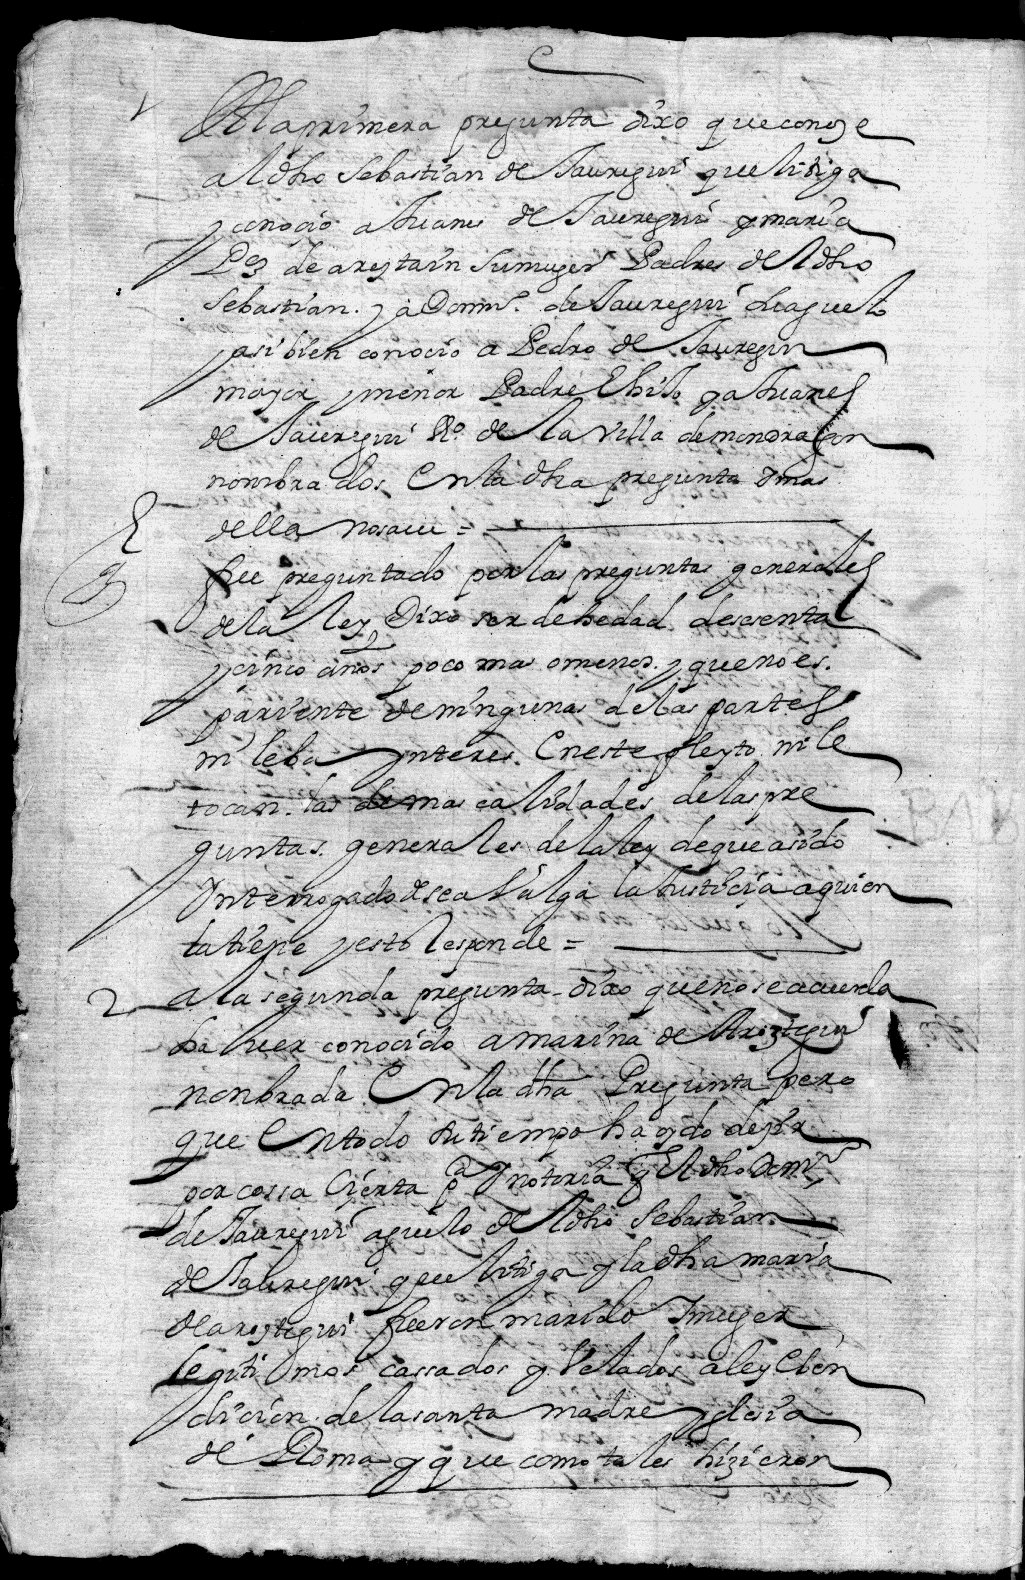 1 A la primera pregunta dixo que conoze
al dho Sebastian de Jauregui que litiga
y conocio a Juanes de Jauregui y maria
Pez de areztain su muger Padres del dho
Sebastian. y a Domin.º de Jauregui su aguelo
y asi bien conocio a Pedro de Jauregui
mayor y menor Padre E hijo y a Juanes
de Jauregui Rº. de la villa de mondragon
nombrados En la dha pregunta y mas
della no saue =
fue preguntado por las preguntas generales
de la ley Dixo ser de hedad de sesenta
y cinco años poco mas o menos. y que no es.
pariente de ningunas de las partes
ni leba ynteres. En este pleyto ni le
tocan. las demas calidades de las pre
guntas. generales de la ley de que a sido
Interrogado desea Valga la Justicia a quien
la tiene y esto Responde =
2 a la segunda pregunta dixo que no se acuerda
haver conocido a marina de Aroztegui
nonbrada En la dha Pregunta pero
que En todo su tiempo ha oydo dezir
por cossa Cierta pª y notoria q El dho Domin
de Jauregui aguelo del dho Sebastian
de Jauregui que litiga y la dha maria
de aroztegui fueron marido Y muger
legitimos cassados y Velados a ley E ben
dicion. de la santa madre yglesia
de Roma y que como tales hizieron